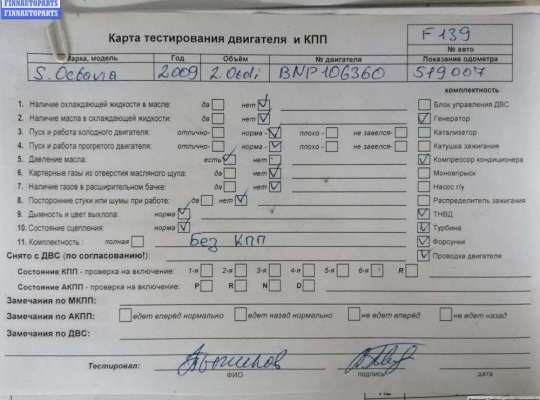 FINNAUTOPARTS
FINNAUTOPARTS
Карта тестирования двигателя и КПП
F 139
№ авто
Марка, модель Год Объём № двигателя Показание одометра
S. Octavia 2009 2.0tdi BNP106360 519007
комплектность
1. Наличие охлаждающей жидкости в масле: да нет Блок управления ДВС
2. Наличие масла в охлаждающей жидкости: да нет Генератор
3. Пуск и работа холодного двигателя: отлично- норма - плохо - не завелся- Катализатор
4. Пуск и работа прогретого двигателя: отлично- норма - плохо - не завелся- Катушка зажигания
5. Давление масла: есть нет Компрессор кондиционера
6. Картерные газы из отверстия масляного щупа: да нет Моновпрыск
7. Наличие газов в расширительном бачке: да нет Насос г/у
8. Посторонние стуки или шумы при работе: да нет Распределитель зажигания
9. Дымность и цвет выхлопа: норма ТНВД
10. Состояние сцепления: норма Турбина
11. Комплектность: полная Без КПП Форсунки
Снято с ДВС (по согласованию!): Проводка двигателя
Состояние КПП - проверка на включение: 1-я 2-я 3-я 4-я 5-я 6-я R
Состояние АКПП - проверка на включение: P R N D
Замечания по МКПП:
Замечания по АКПП: едет вперёд нормально едет назад нормально не едет вперёд не едет назад
Замечания по ДВС:
Тестировал:
ФИО подпись дата